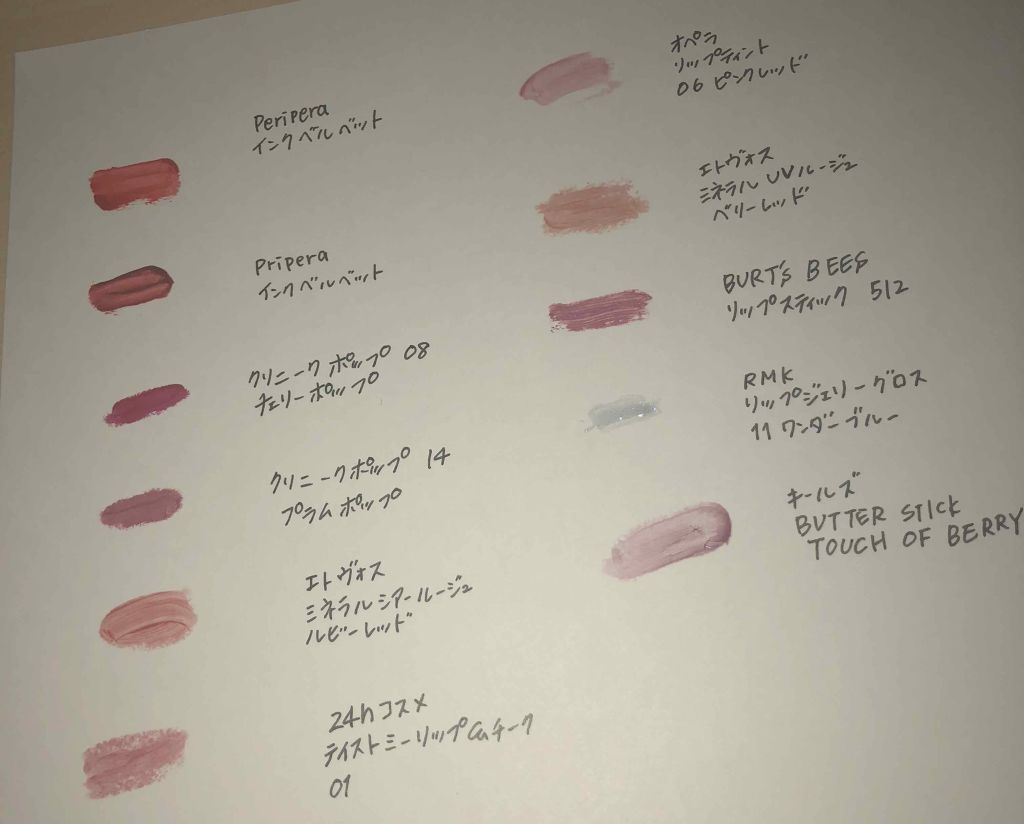 Peripera
インクベルベット
Pripera
インクベルベット
クリニークポップ 08
チェリーポップ
クリニークポップ 14
プラムポップ
エトヴォス
ミネラルシアールージュ
ルビーレッド
24hコスメ
テイストミーリップ&チーク
01
オペラ
リップティント
06 ピンクレッド
エトヴォス
ミネラルUVルージュ
ベリーレッド
BURT's BEES
リップスティック 512
RMK
リップジェリーグロス
11 ワンダーブルー
キールズ
BUTTER STICK
TOUCH OF BERRY